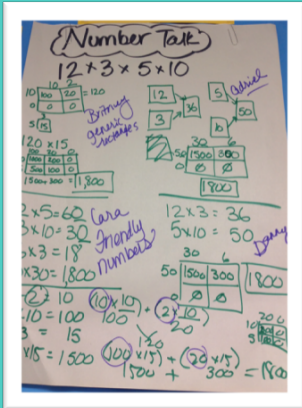 Number Talk
12 × 3 × 5 × 10
10 2
10 100 20 = 120
0 0 0
5 15
Britney
generic
rectangles
120 × 15
1500+300 = 1,800
12
3
36
5
10
50
Adriel
30 6
50 1500 300
0 0 0
1800
2×5=60
3×10=30
6×3=18
×30=1,800
Cara
Friendly
numbers
12×3 = 36
5×10 = 50
Danny
30 6
50 1500 300
0 0 0
1800
2 = 10
10 = 100
3 = 15
×15 = 1500
(10×10) + (2×10)
100 20
120
(100×15) + (20×15)
1500 + 300 = 1800